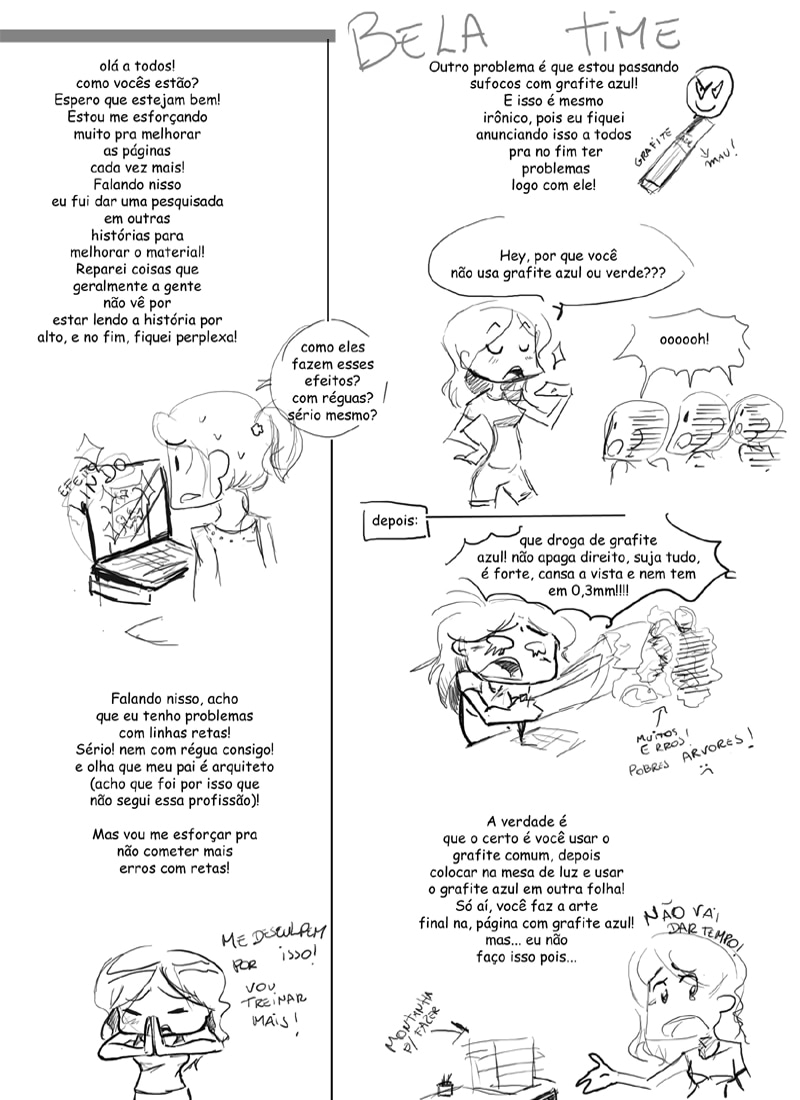 BELA TIME
olá a todos!
como vocês estão?
Espero que estejam bem!
Estou me esforçando
muito pra melhorar
as páginas
cada vez mais!
Falando nisso
eu fui dar uma pesquisada
em outras
histórias para
melhorar o material!
Reparei coisas que
geralmente a gente
não vê por
estar lendo a história por
alto, e no fim, fiquei perplexa!
como eles
fazem esses
efeitos?
com réguas?
sério mesmo?
EFEITO
LINDO
Falando nisso, acho
que eu tenho problemas
com linhas retas!
Sério! nem com régua consigo!
e olha que meu pai é arquiteto
(acho que foi por isso que
não segui essa profissão)!
Mas vou me esforçar pra
não cometer mais
erros com retas!
ME DESCULPEM
POR ISSO!
VOU
TREINAR
MAIS!
Outro problema é que estou passando
sufocos com grafite azul!
E isso é mesmo
irônico, pois eu fiquei
anunciando isso a todos
pra no fim ter
problemas
logo com ele!
GRAFITE
MAU!
Hey, por que você
não usa grafite azul ou verde???
oooooh!
depois:
que droga de grafite
azul! não apaga direito, suja tudo,
é forte, cansa a vista e nem tem
em 0,3mm!!!!
MUITOS
ERROS!
POBRES ARVORES!
A verdade é
que o certo é você usar o
grafite comum, depois
colocar na mesa de luz e usar
o grafite azul em outra folha!
Só aí, você faz a arte
final na, página com grafite azul!
mas... eu não
faço isso pois...
NÃO VAI
DAR TEMPO!
MONTANHA
P/ FAZER